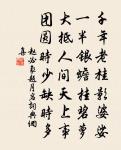 千年老桂影婆娑
一半銀蟾桂碧萝
大抵人间天上事
团圆时少缺时多
赵必象赵月岩词典网
集